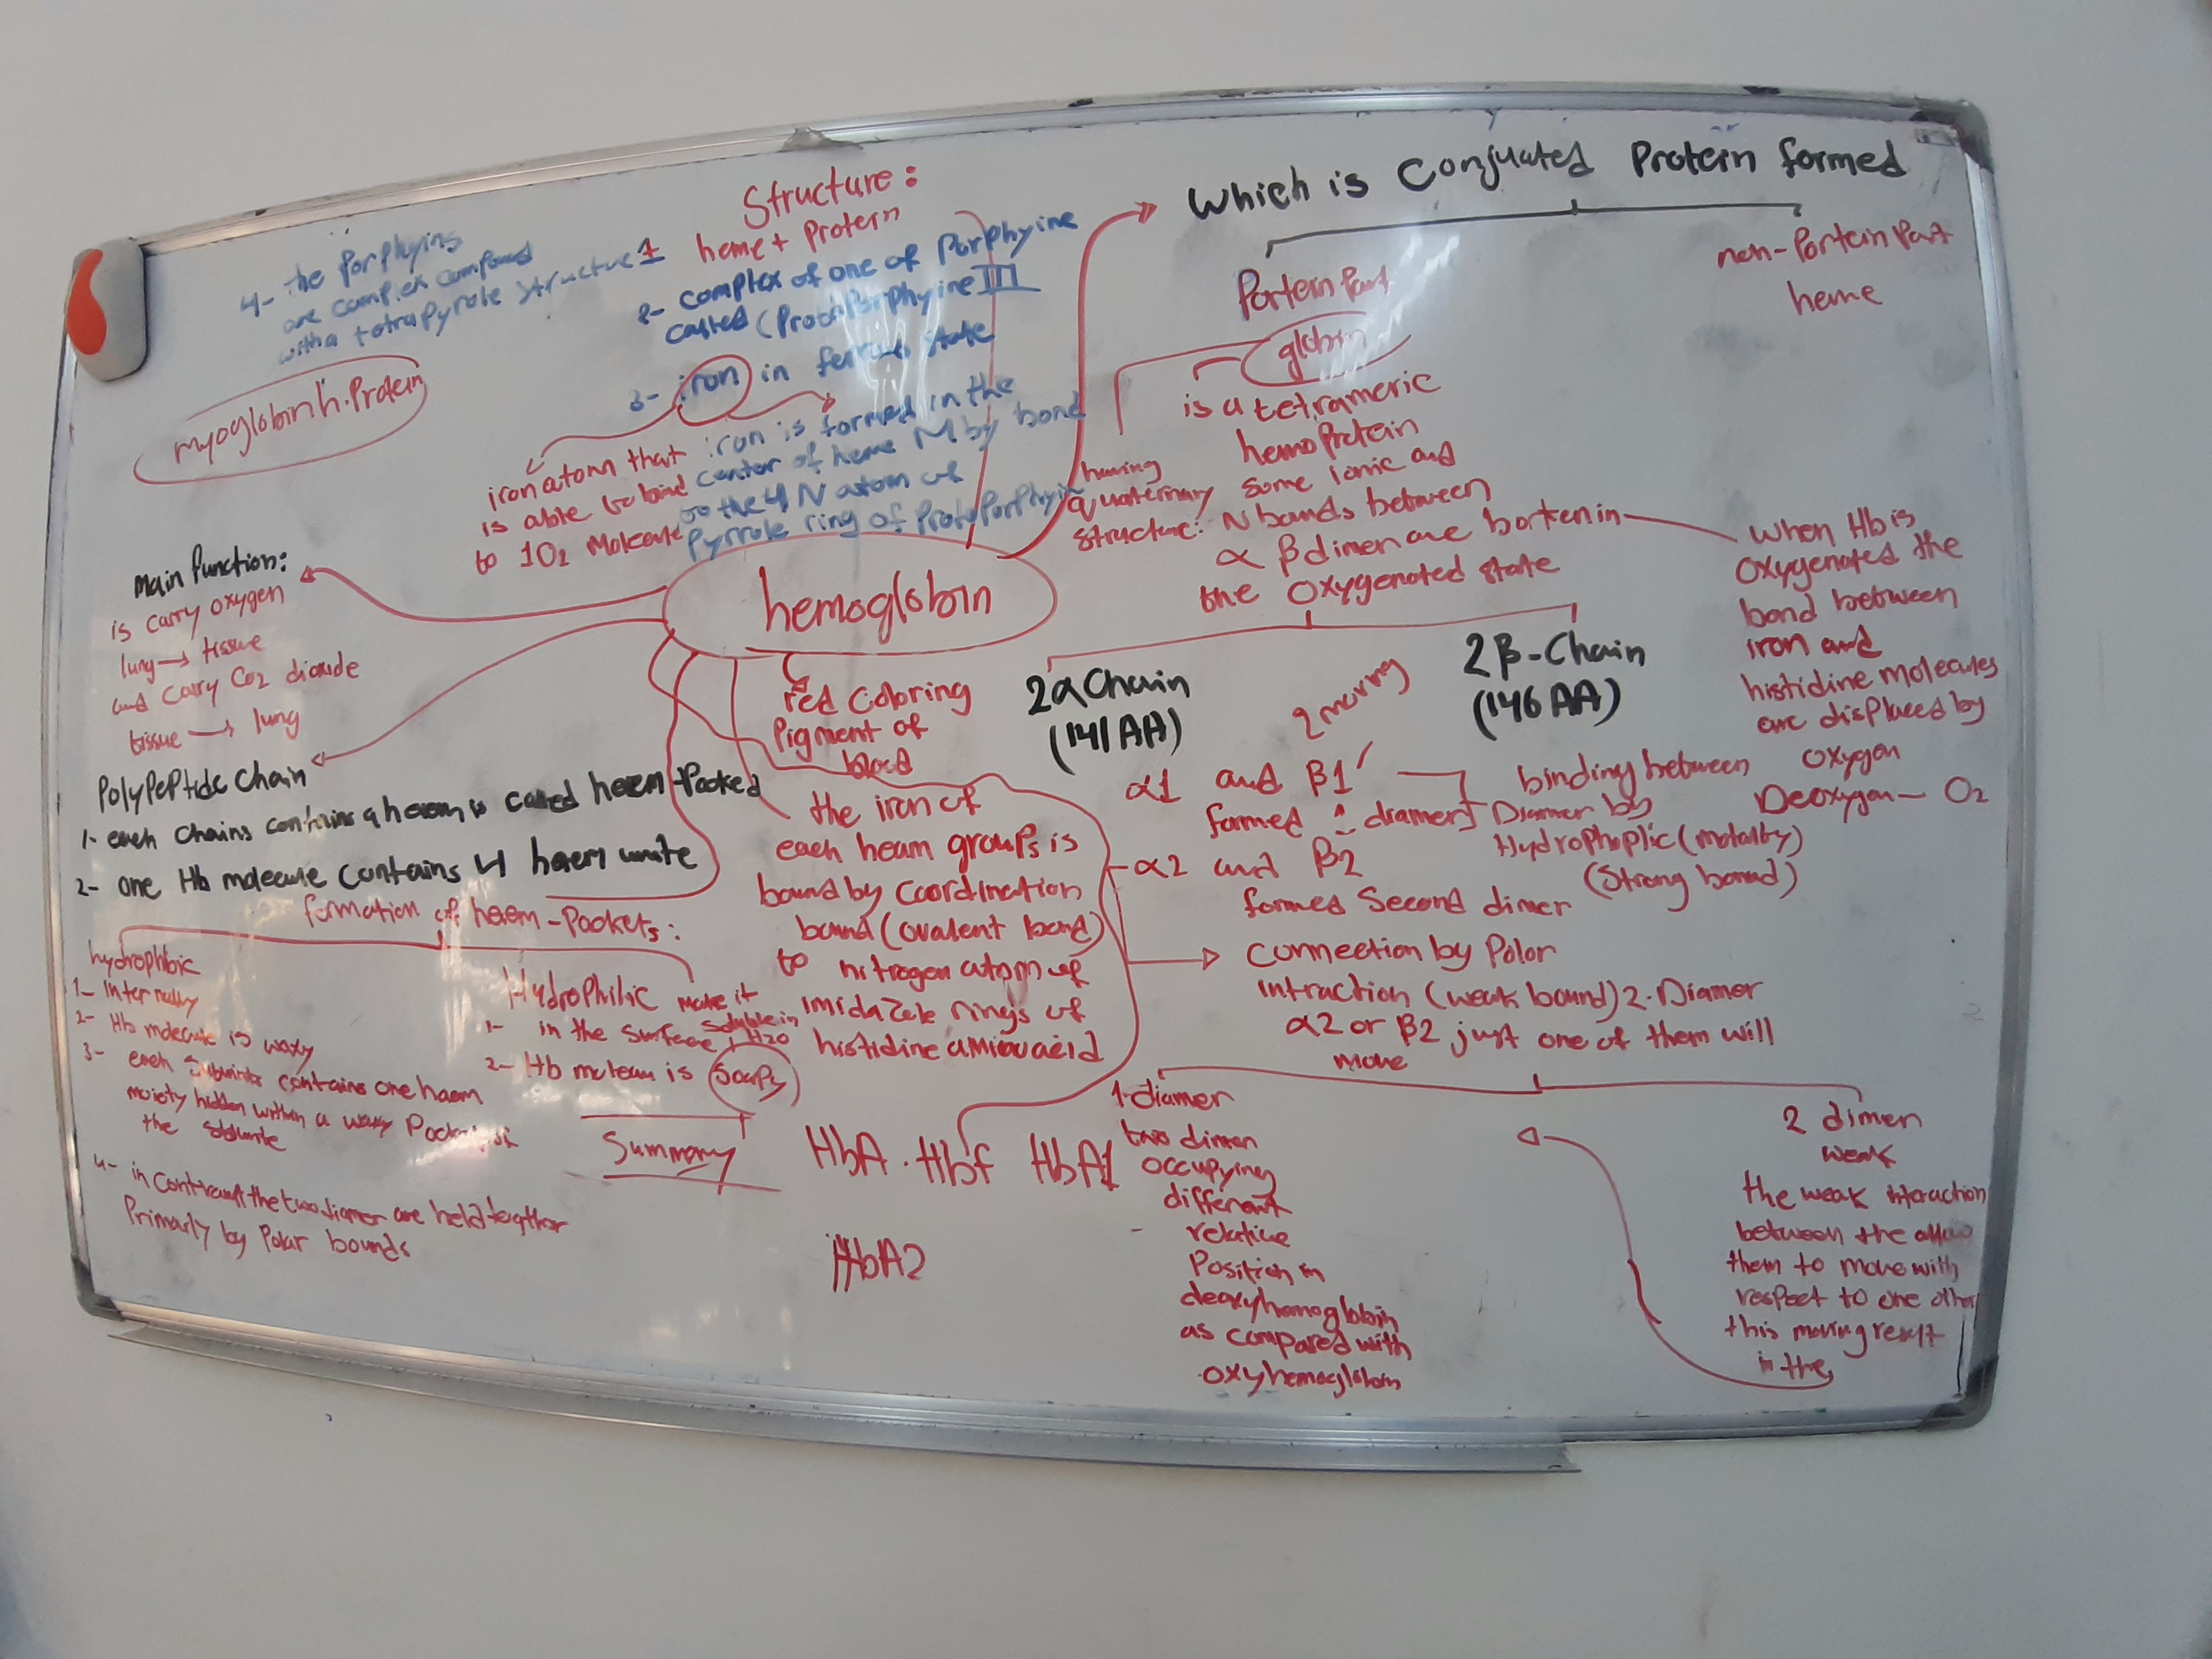 Structure:
1 heme + Protein
2- Complex of one of Porphyine
called (ProtoPorphyine III
3- iron in ferrous state
4- the Porphyins
are complex compound
with a tetrapyrole structure
iron atom that
is able to bind
to 1O2 Molecule
iron is formed in the
center of heme M by bond
to the 4 N atom of
Pyrrole ring of ProtoPorphyin
myoglobin h.Protein
hemoglobin
Which is Conjuated Protein formed
Portein Part
globin
non-Portein Part
heme
is a tetrameric
hemoProtein
having
quaternary
structure:
some ionic and
N bonds between
α β dimen are borken in
the Oxygenated state
when Hb is
Oxygenated the
bond between
iron and
histidine molecules
are displaced by
oxygen
Deoxygen- O2
2α Chain
(141 AA)
2 moving
2 β-Chain
(146 AA)
α1 and β1
formed 1 diamer
α2 and β2
formed Second dimer
binding between
Diamer by
Hydrophoplic (motalby)
(Strong bond)
Connection by Polar
intraction (weak bound) 2-Diamer
α2 or β2 just one of them will
move
1-diamer
two dimen
occupying
different
relative
Position in
deoxyhemoglobin
as compared with
oxyhemoglobin
2 dimen
weak
the weak interaction
between the allow
them to move with
respect to one other
this moving result
in the
Main Function:
is carry oxygen
lung → tissue
and carry Co2 dioxide
tissue → lung
PolyPePtide Chain
1- each Chains contains a haem is called haem-Pocked
2- one Hb molecule contains 4 haem unite
formation of haem-Pockets:
hydrophbic
1- Internally
2- Hb molecule is waxy
3- each Subunits contains one haem
moiety hidden within a waxy Pocket
the
4- in Contraust the two diamer are held togther
Primarly by Polar bounds
Hydrophilic make it
soluble in
H2O
1- in the surface
2- Hb moleun is Soapy
red Coloring
Pigment of
blood
the iron of
each heam groups is
bound by Coordination
bound (ovalent bond)
to nitrogen atom of
imidazole rings of
histidine aminoacid
Summary
HbA . Hbf HbA1
HbA2